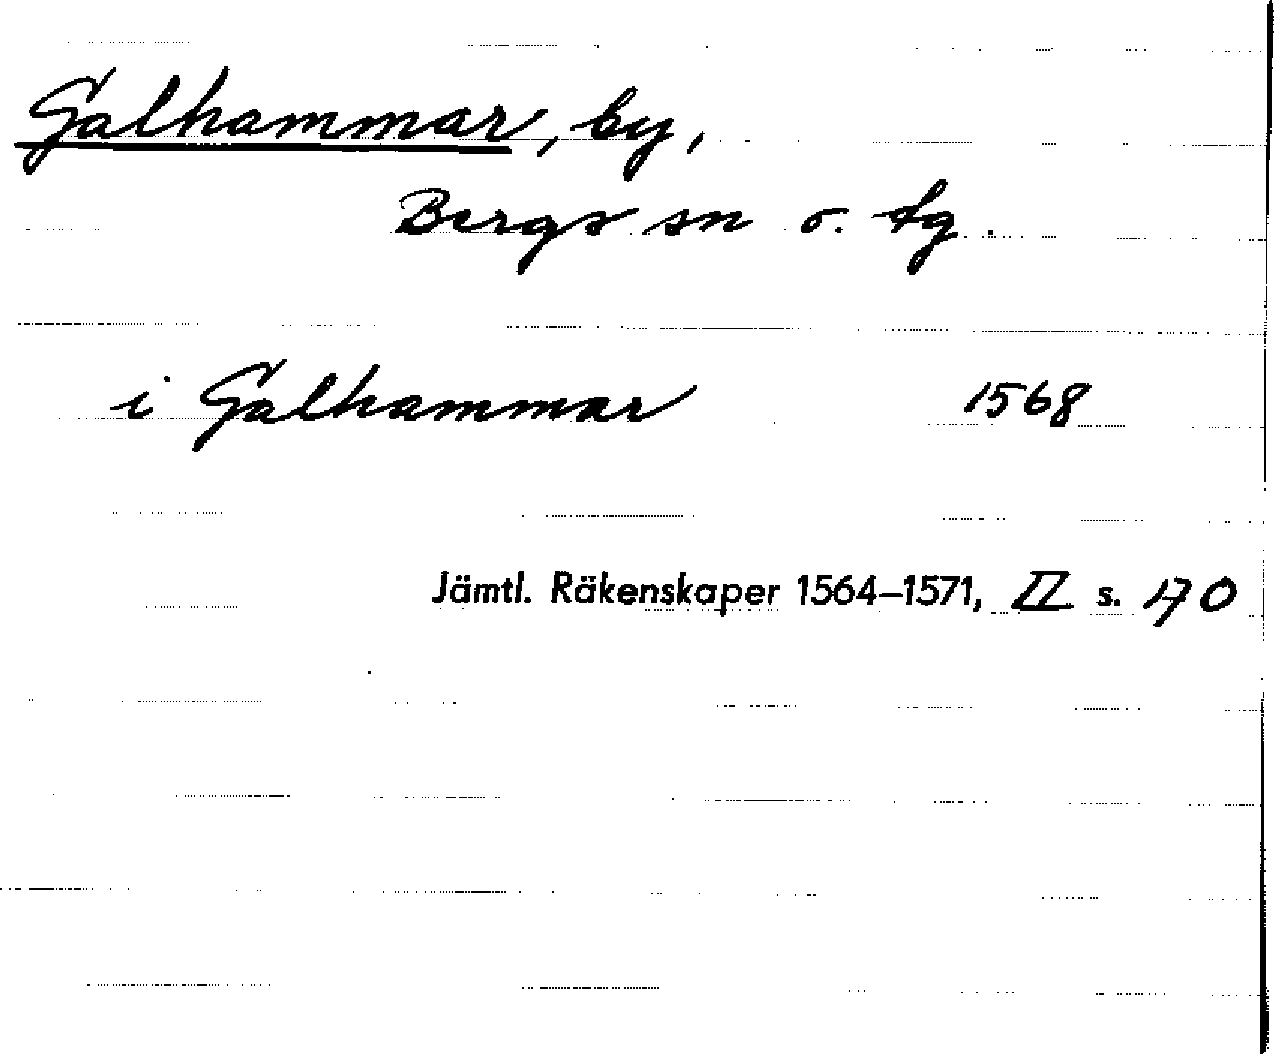 Galhammar, by,
Bergs sn o. tg.
i Galhammar 1568
Jämtl. Räkenskaper 1564–1571, II s. 170